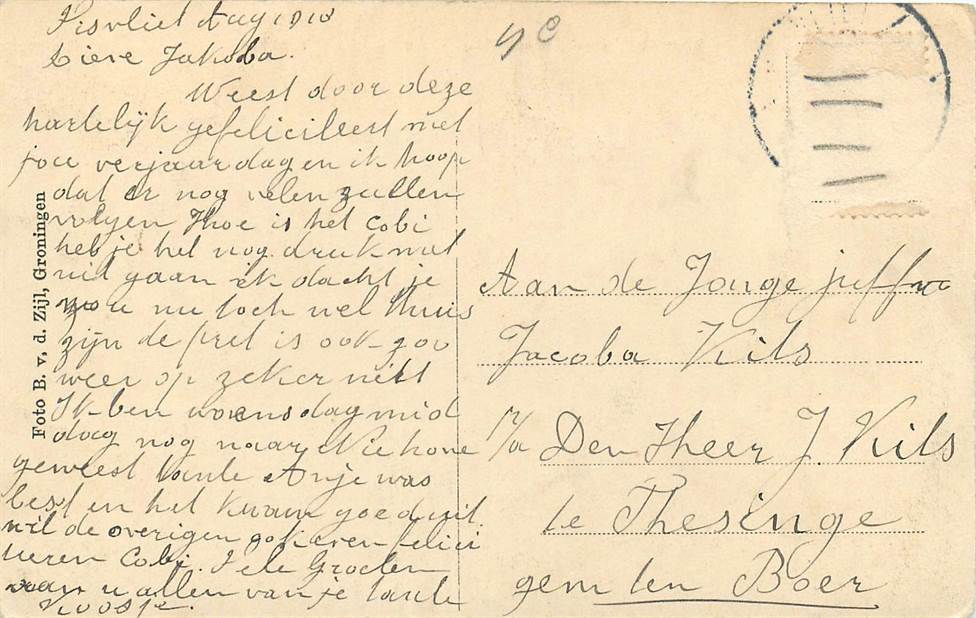 Lieve Jakoba.
Weest door deze
hartelijk gefeliciteert met
jou verjaardag en ik hoop
dat er nog velen zullen
volgen Hoe is het Cobi
heb je het nog druk met
uit gaan ik dacht je
zou nu toch wel thuis
zijn de pret is ook zoo
weer op zeker niet
Ik ben woensdag mid
dag nog naar
geweest tante Anje was
best en het kwam goed uit
wil de overigen ook even felici
teren Cobi. Vele Groeten
van u allen van je tante
Foto B. v. d. Zijl, Groningen
Aan de Jonge juffr
Jacoba Kils
p/a Den Heer J. Kils
te Thesinge
gem ten Boer